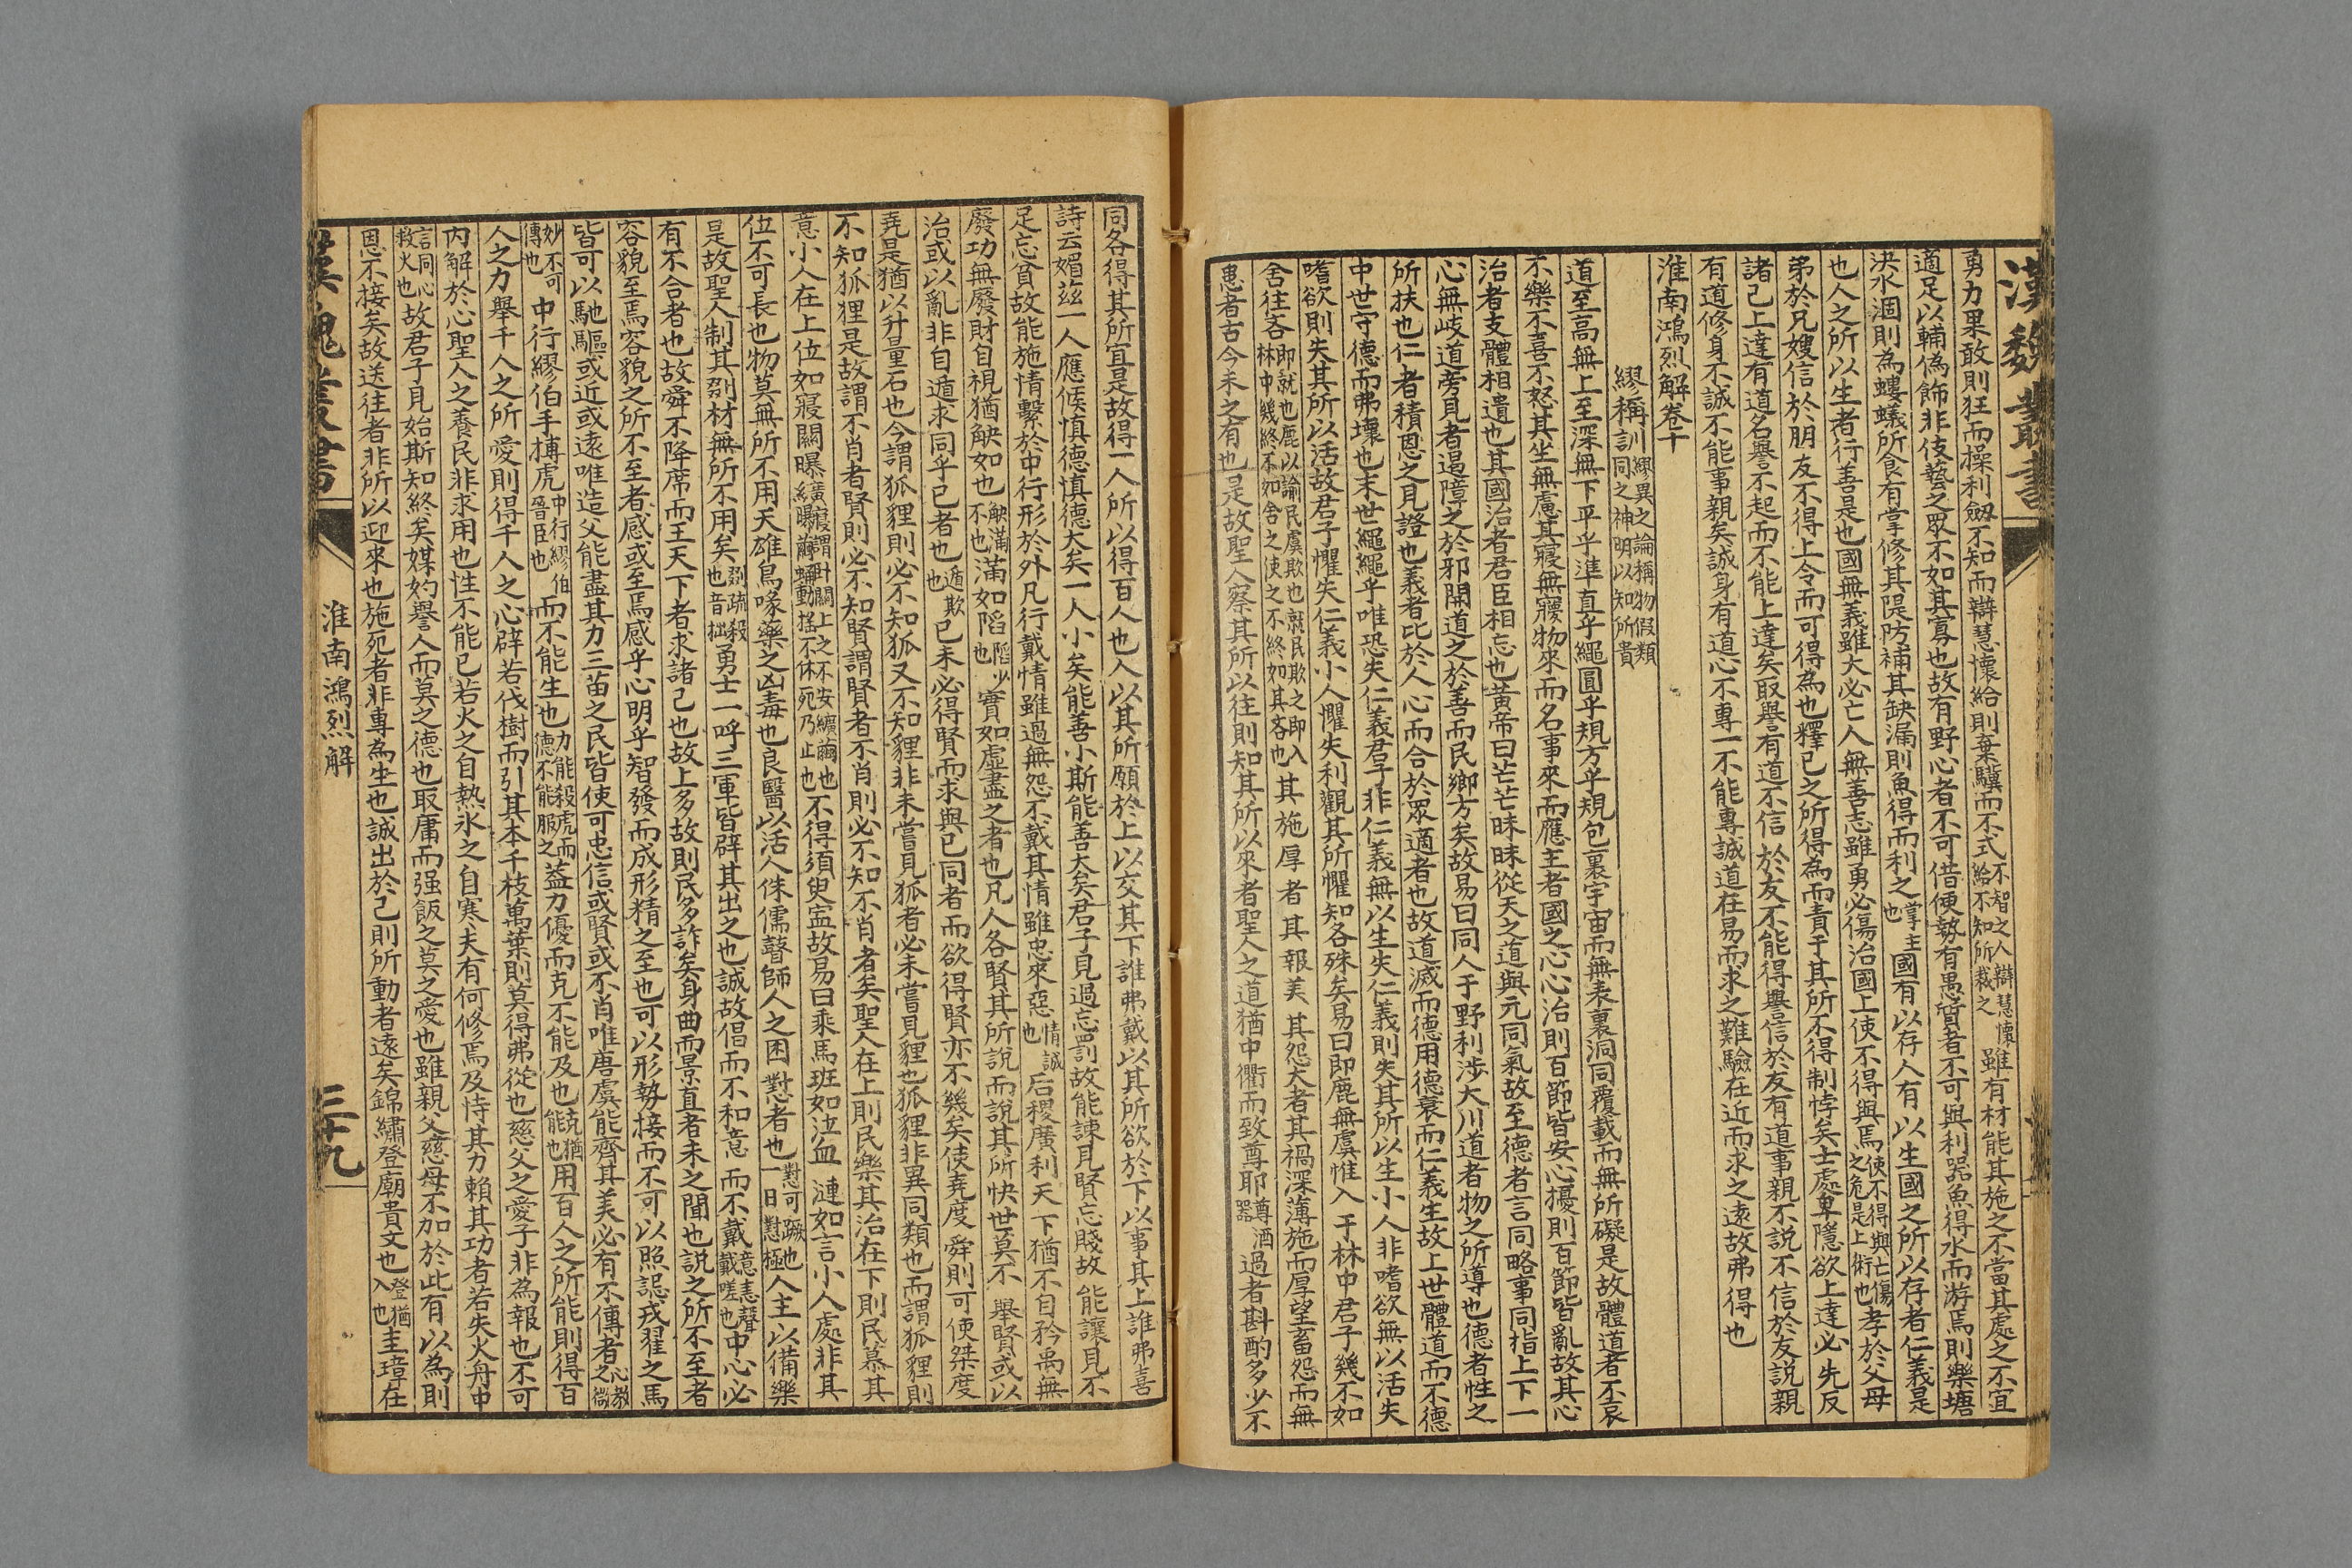 漢魏叢書
勇力果敢則狂而操利劔不知而辯慧懷給則棄驥而不式不智之人辯慧懷給不知所裁之雖有材能其施之不當其處之不宜
適足以輔偽飾非伎藝之眾不如其寡也故有野心者不可借便勢有愚質者不可與利器魚得水而游焉則樂塘
決水涸則為螻蟻所食有掌修其隄防補其缺漏則魚得而利之掌主也國有以存人有以生國之所以存者仁義是
也人之所以生者行善是也國無義雖大必亡人無善志雖勇必傷治國上使不得與焉使不得與亡傷之危是上術也孝於父母
弟於兄嫂信於朋友不得上令而可得為也釋己之所得為而責于其所不得制悖矣士處卑隱欲上達必先反
諸己上達有道名譽不起而不能上達矣取譽有道不信於友不能得譽信於友有道事親不説不信於友説親
有道修身不誠不能事親矣誠身有道心不專一不能專誠道在易而求之難驗在近而求之遠故弗得也
淮南鴻烈解卷十
繆稱訓繆異之論稱物假類同之神明以知所貴
道至高無上至深無下平乎準直乎繩圓乎規方乎規包裹宇宙而無表裏洞同覆載而無所礙是故體道者不哀
不樂不喜不怒其坐無慮其寢無寢物來而名事來而應主者國之心心治則百節皆安心擾則百節皆亂故其心
治者支體相遺也其國治者君臣相忘也黃帝曰芒芒昧昧從天之道與元同氣故至德者言同略事同指上下一
心無岐道旁見者遏障之於邪開道之於善而民鄉方矣故易曰同人于野利涉大川道者物之所導也德者性之
所扶也仁者積恩之見證也義者比於人心而合於眾適者也故道滅而德用德衰而仁義生故上世體道而不德
中世守德而弗壞也末世繩繩乎唯恐失仁義君子非仁義無以生失仁義則失其所以生小人非嗜欲無以活失
嗜欲則失其所以活故君子懼失仁義小人懼失利觀其所懼知各殊矣易曰即鹿無虞惟入于林中君子幾不如
舍往吝即就也鹿以諭民虞欺也就民欺之即入林中幾終不如舍之使之不終如其吝也其施厚者其報美其怨大者其禍深薄施而厚望畜怨而無
患者古今未之有也是故聖人察其所以往則知其所以來者聖人之道猶中衢而致尊耶尊酒器過者斟酌多少不
同各得其所宜是故得一人所以得百人也人以其所願於上以交其下誰弗戴以其所欲於下以事其上誰弗喜
詩云媚茲一人應候慎德慎德大矣一人小矣能善小斯能善大矣君子見過忘罰故能諫見賢忘賤故能讓見不
足忘貧故能施情繫於中行形於外凡行戴情雖過無怨不戴其情雖忠來惡情誠也后稷廣利天下猶不自矜禹無
廢功無廢財自視猶觖如也觖滿不也滿如陷陷少也實如虛盡之者也凡人各賢其所說而說其所快世莫不舉賢或以
治或以亂非自遁求同乎己者也遁欺也己未必得賢而求與己同者而欲得賢亦不幾矣使堯度舜則可使桀度
堯是猶以升量石也今謂狐狸則必不知狐又不知狸非未嘗見狐者必未嘗見狸也狐狸非異同類也而謂狐狸則
不知狐狸是故謂不肖者賢則必不知賢謂賢者不肖則必不知不肖者矣聖人在上則民樂其治在下則民慕其
意小人在上位如寢關曝纊寢謂臥關上之不安纊繭也曝繭蛹動搖不休死乃止也不得須臾寍故易曰乘馬班如泣血漣如言小人處非其
位不可長也物莫無所不用天雄烏喙藥之凶毒也良醫以活人侏儒瞽師人之困懟者也懟可蹶也一曰懟極人主以備樂
是故聖人制其剟材無所不用矣剟疏殺也音拙勇士一呼三軍皆辟其出之也誠故倡而不和意而不戴意恚聲戴嗟也中心必
有不合者也故舜不降席而王天下者求諸己也故上多故則民多詐矣身曲而景直者未之聞也說之所不至者
容貌至焉容貌之所不至者感或至焉感乎心明乎智發而成形精之至也可以形勢接而不可以照誋戎翟之馬
皆可以馳驅或近或遠唯造父能盡其力三苗之民皆使可忠信或賢或不肖唯唐虞能齊其美必有不傳者心教之微
妙不可傳也中行繆伯手搏虎中行繆伯晉臣也而不能生也力能殺虎而德不能服之葢力優而克不能及也克猶能也用百人之所能則得百
人之力舉千人之所愛則得千人之心辟若伐樹而引其本千枝萬葉則莫得弗從也慈父之愛子非為報也不可
內解於心聖人之養民非求用也性不能已若火之自熱氷之自寒夫有何修焉及恃其力賴其功者若失火舟中
言同心救火也故君子見始斯知終矣媒妁譽人而莫之德也取庸而强飯之莫之愛也雖親父慈母不加於此有以為則
恩不接矣故送往者非所以迎來也施死者非專為生也誠出於己則所動者遠矣錦繡登廟貴文也登猶入也圭璋在
漢魏叢書
淮南鴻烈解
三十九